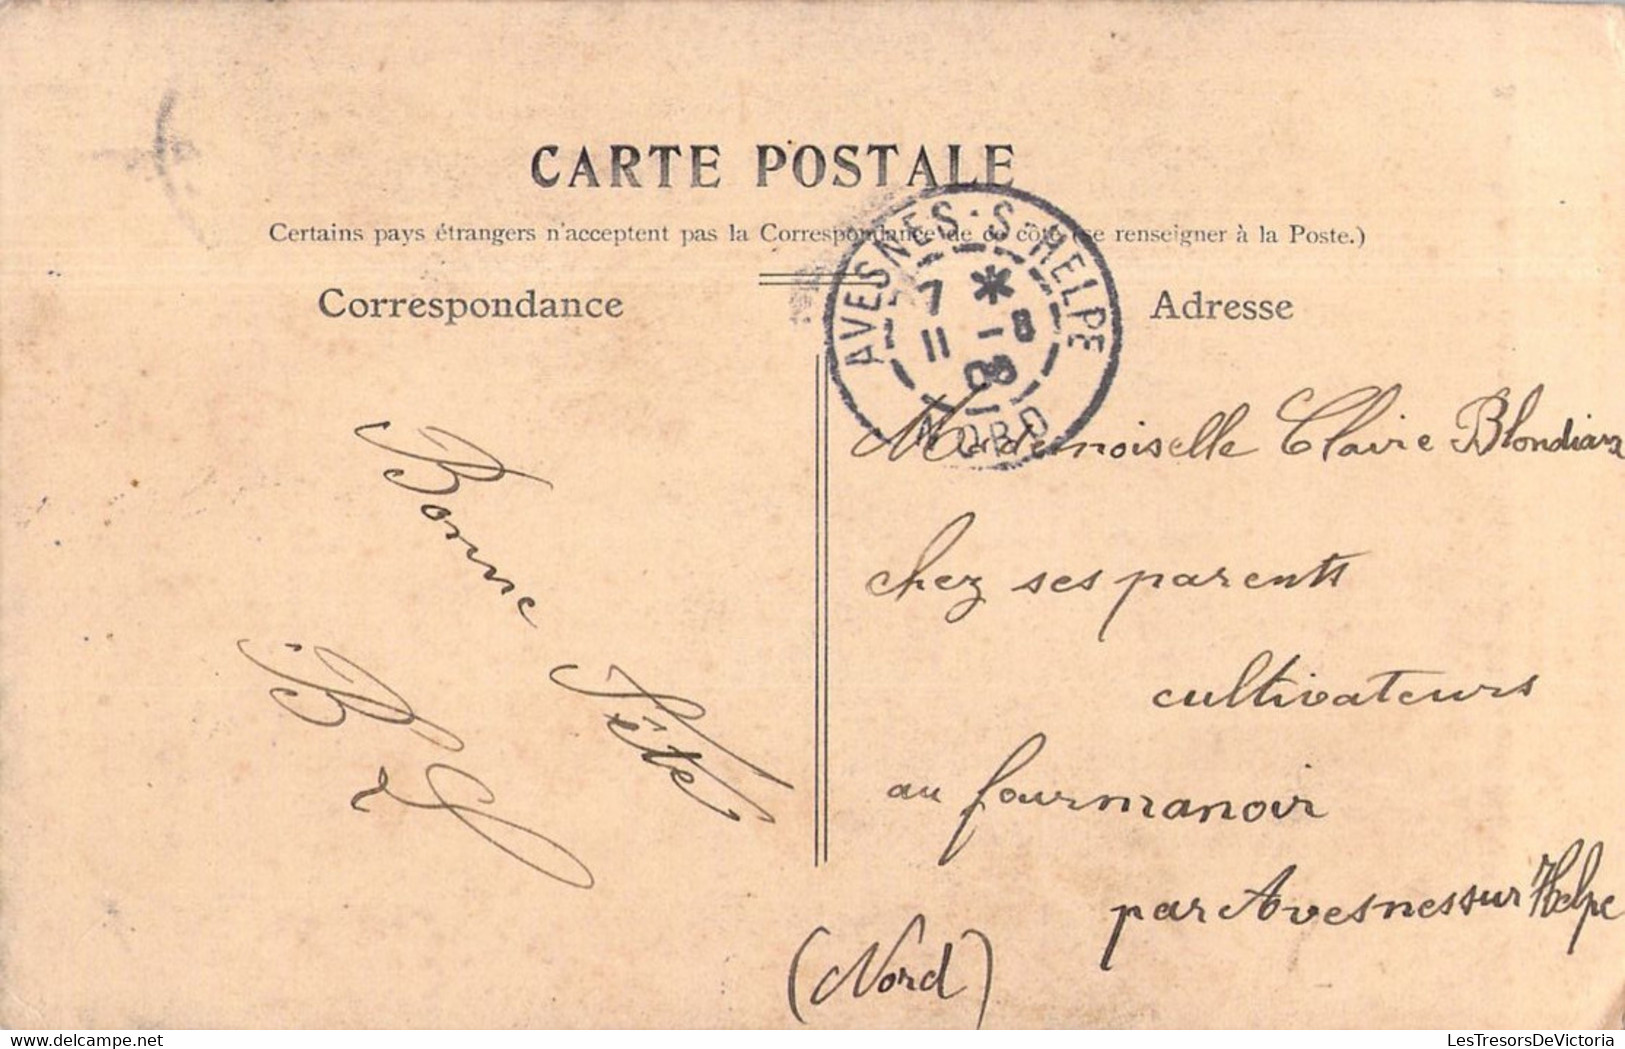 CARTE POSTALE
Certains pays étrangers n'acceptent pas la Correspondance de ce côté (se renseigner à la Poste.)
Correspondance
Adresse
AVESNES-S-HELPE
7 * - 8
11 08
NORD
Bonne
Fête
Mademoiselle Claire Blondiaux
chez ses parents
cultivateurs
au fourmanoir
par Avesnes sur Helpe
(Nord)
LesTresorsDeVictoria